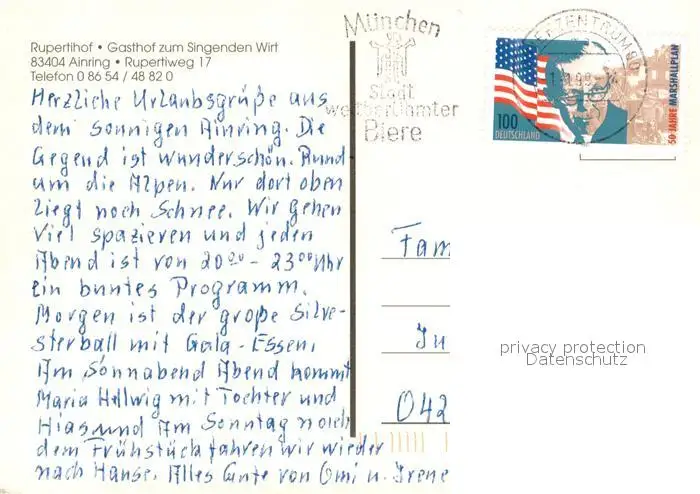 Rupertihof • Gasthof zum Singenden Wirt
83404 Ainring • Rupertiweg 17
Telefon 0 86 54 / 48 82 0
Herzliche Urlaubsgrüße aus
dem sonnigen Ainring. Die
Gegend ist wunderschön. Rund
um die Alpen. Nur dort oben
liegt noch Schnee. Wir gehen
viel spazieren und jeden
Abend ist von 20⁰⁰ - 23⁰⁰ Uhr
ein buntes Programm.
Morgen ist der große Silve-
sterball mit Gala - Essen.
Am Sonnabend Abend kommt
Maria Hellwig mit Tochter und
Hias und Am Sonntag noich
dem Frühstück fahren wir wieder
nach Hause. Alles Gute von Omi u. Irene
München
Stadt
weltberühmter
Biere
BRIEFZENTRUM 80
100
DEUTSCHLAND
50 JAHRE MARSHALLPLAN
Fam
In
042
privacy protection
Datenschutz